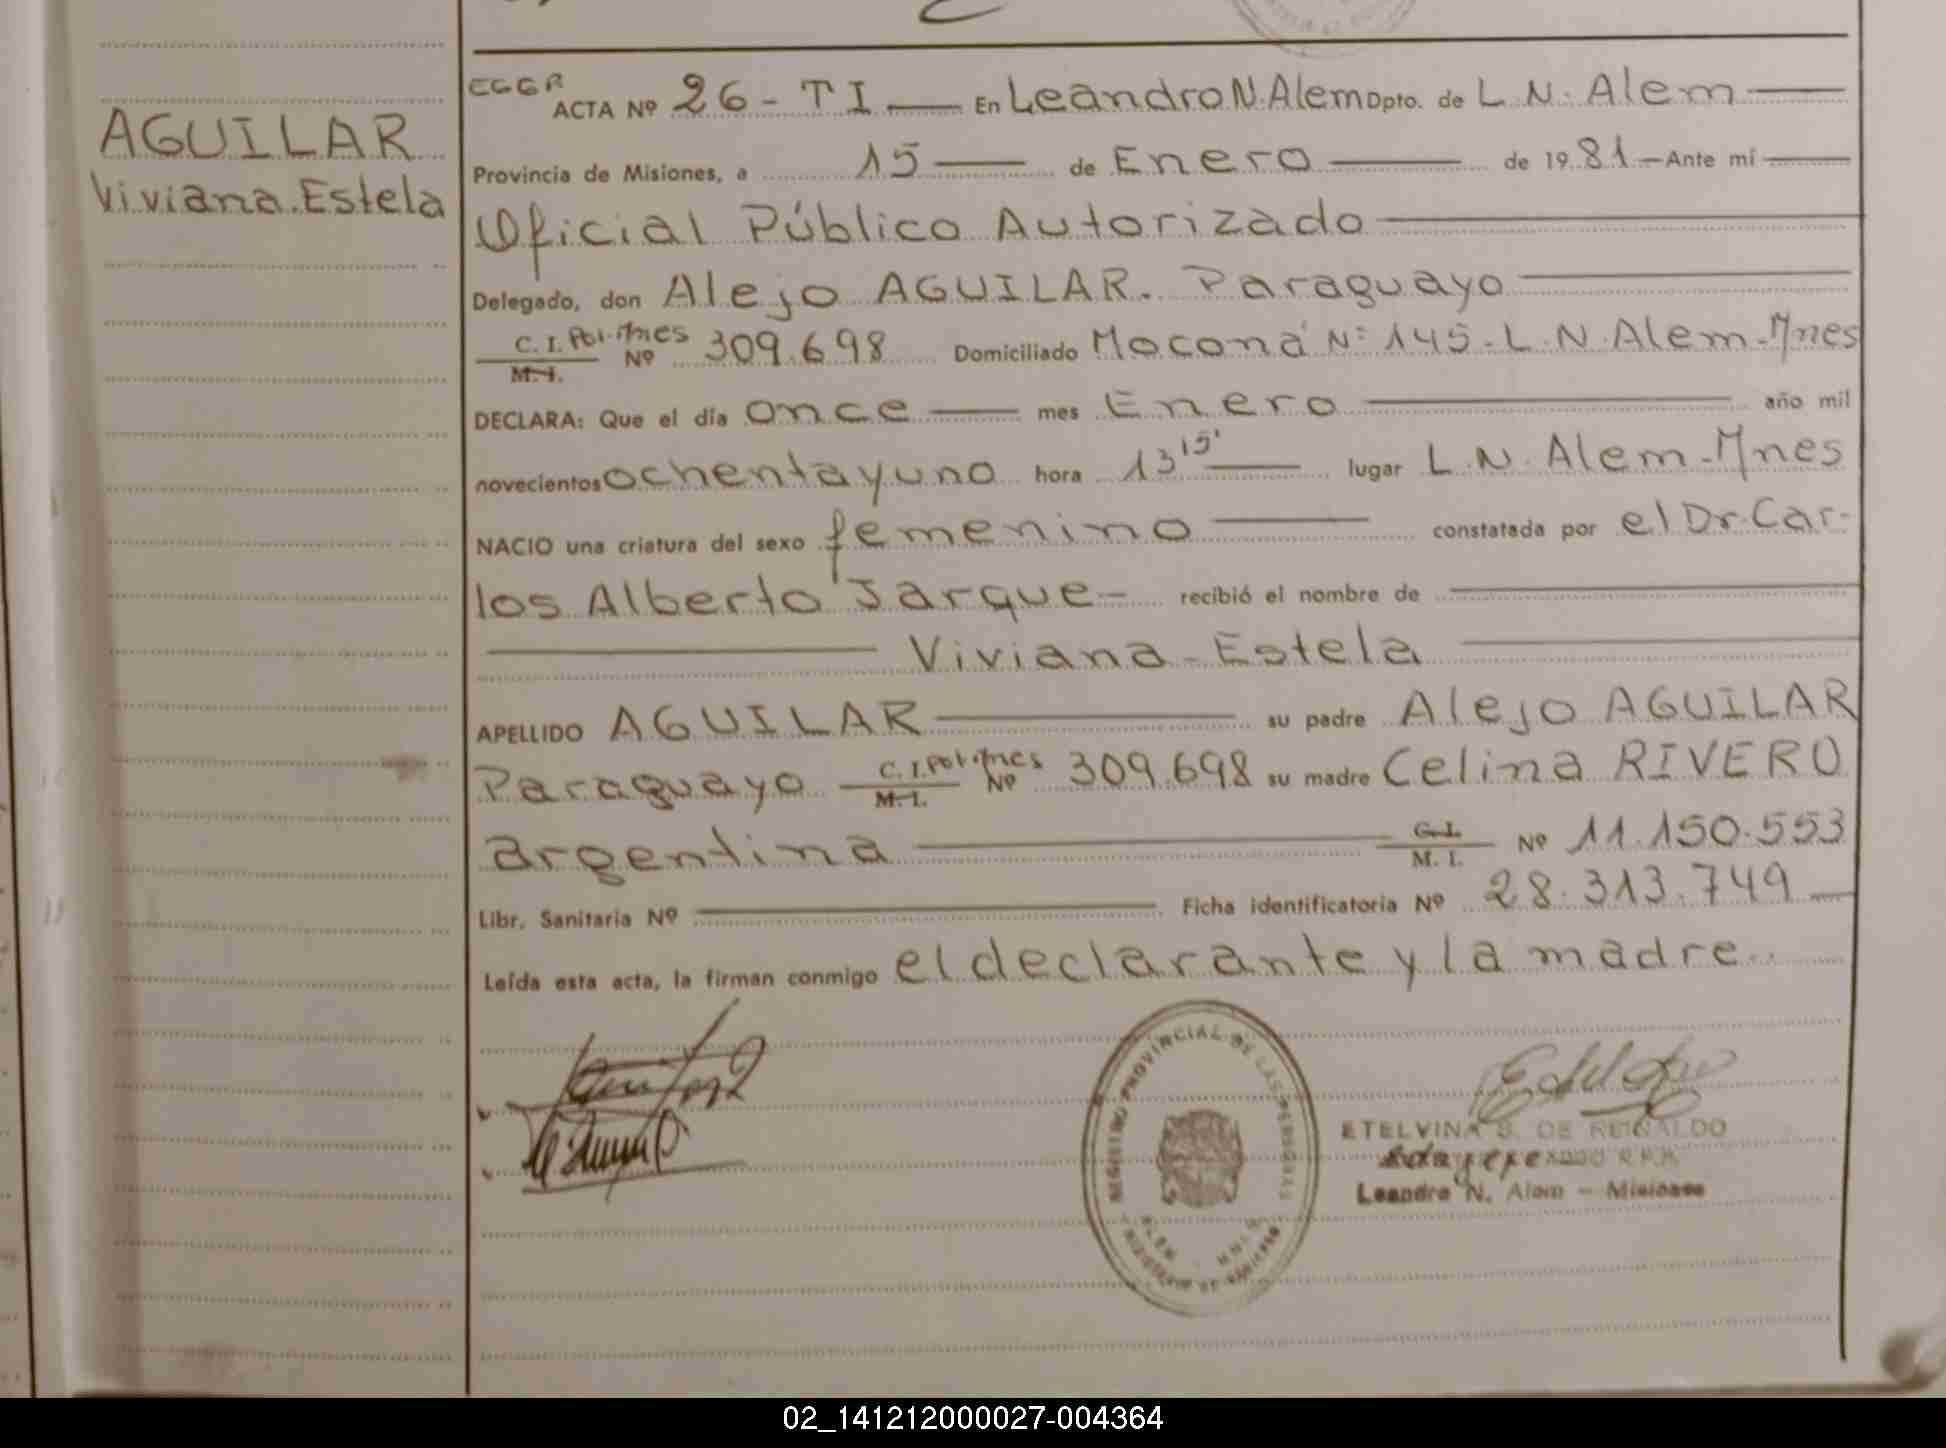 AGUILAR
Viviana Estela
ACTA Nº 26 - TI — En Leandro N. Alem Dpto. de L. N. Alem —
Provincia de Misiones, a 15 — de Enero — de 1981 — Ante mí —
Oficial Público Autorizado —
Delegado, don Alejo AGUILAR. Paraguayo —
C. I. Pol. Mnes
M. I. Nº 309.698 Domiciliado Moconá Nº 145 - L. N. Alem - Mnes
DECLARA: Que el día once — mes Enero — año mil
novecientos ochenta y uno hora 13 15' — lugar L. N. Alem - Mnes
NACIO una criatura del sexo femenino — constatada por el Dr. Car-
los Alberto Jarque - recibió el nombre de —
— Viviana Estela —
APELLIDO AGUILAR — su padre Alejo AGUILAR
Paraguayo C. I. Pol. Mnes M. I. Nº 309.698 su madre Celina RIVERO
argentina — C. I. M. I. Nº 11.150.553
Libr. Sanitaria Nº — Ficha identificatoria Nº 28.313.749 —
Leída esta acta, la firman conmigo el declarante y la madre.
REGISTRO PROVINCIAL DE LAS PERSONAS
ETELVINA B. DE REIGALDO
Leandro N. Alem - Misiones
02_141212000027-004364